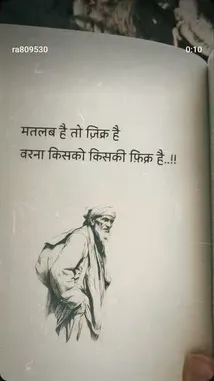 ra809530
0:10
मतलब है तो ज़िक्र है
वरना किसको किसकी फ़िक्र है..!!